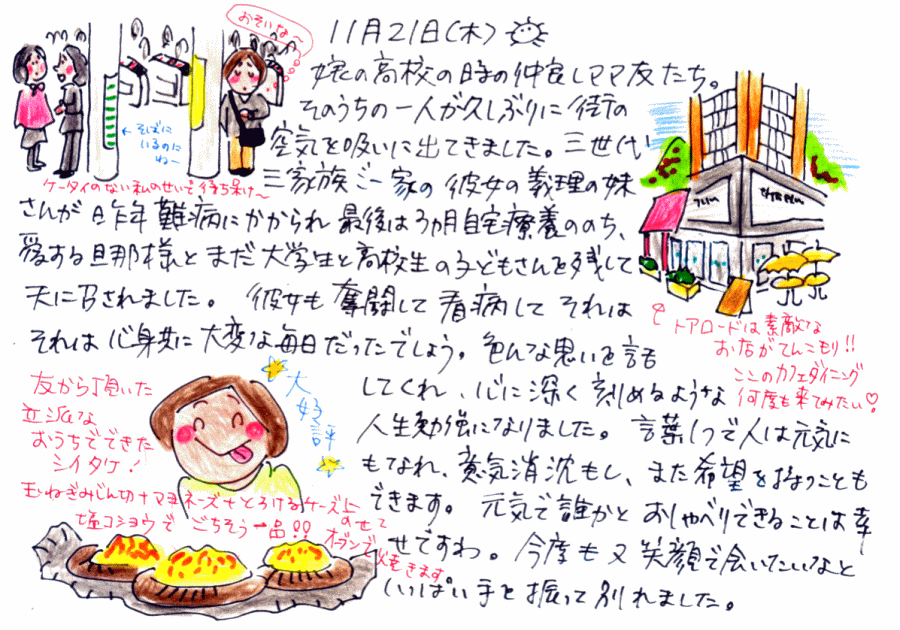 おそいな〜
11月21日(木)
娘の高校の時の仲良しママ友たち。
そのうちの一人が久しぶりに街の
空気を吸いに出てきました。三世代
三家族ご一家の彼女の義理の妹
さんが昨年難病にかかられ最後は3ヵ月自宅療養ののち、
愛する旦那様とまだ大学生と高校生の子どもさんを残して
天に召されました。 彼女も奮闘して看病してそれは
それは心身共に大変な毎日だったでしょう。色んな思いを話
してくれ、心に深く刻めるような
人生勉強になりました。 言葉1つで人は元気に
もなれ、意気消沈もし、また希望を持つことも
できます。 元気で誰かとおしゃべりできることは幸
せですね。今度も又笑顔で会いたいなと
いっぱい手を振って別れました。
←そばに
いるのに
ねー
ケータイのない私のせいで待ち呆け〜
トアロードは素敵な
お店がてんこもり!!
ここのカフェダイニング
何度も来てみたい♡
友から頂いた
立派な
おうちでできた
シイタケ!
大好評
玉ねぎみじん切+マヨネーズ+とろけるチーズ上
のせて
塩コショウで ごちそう一品!!
オーブンで
焼きます